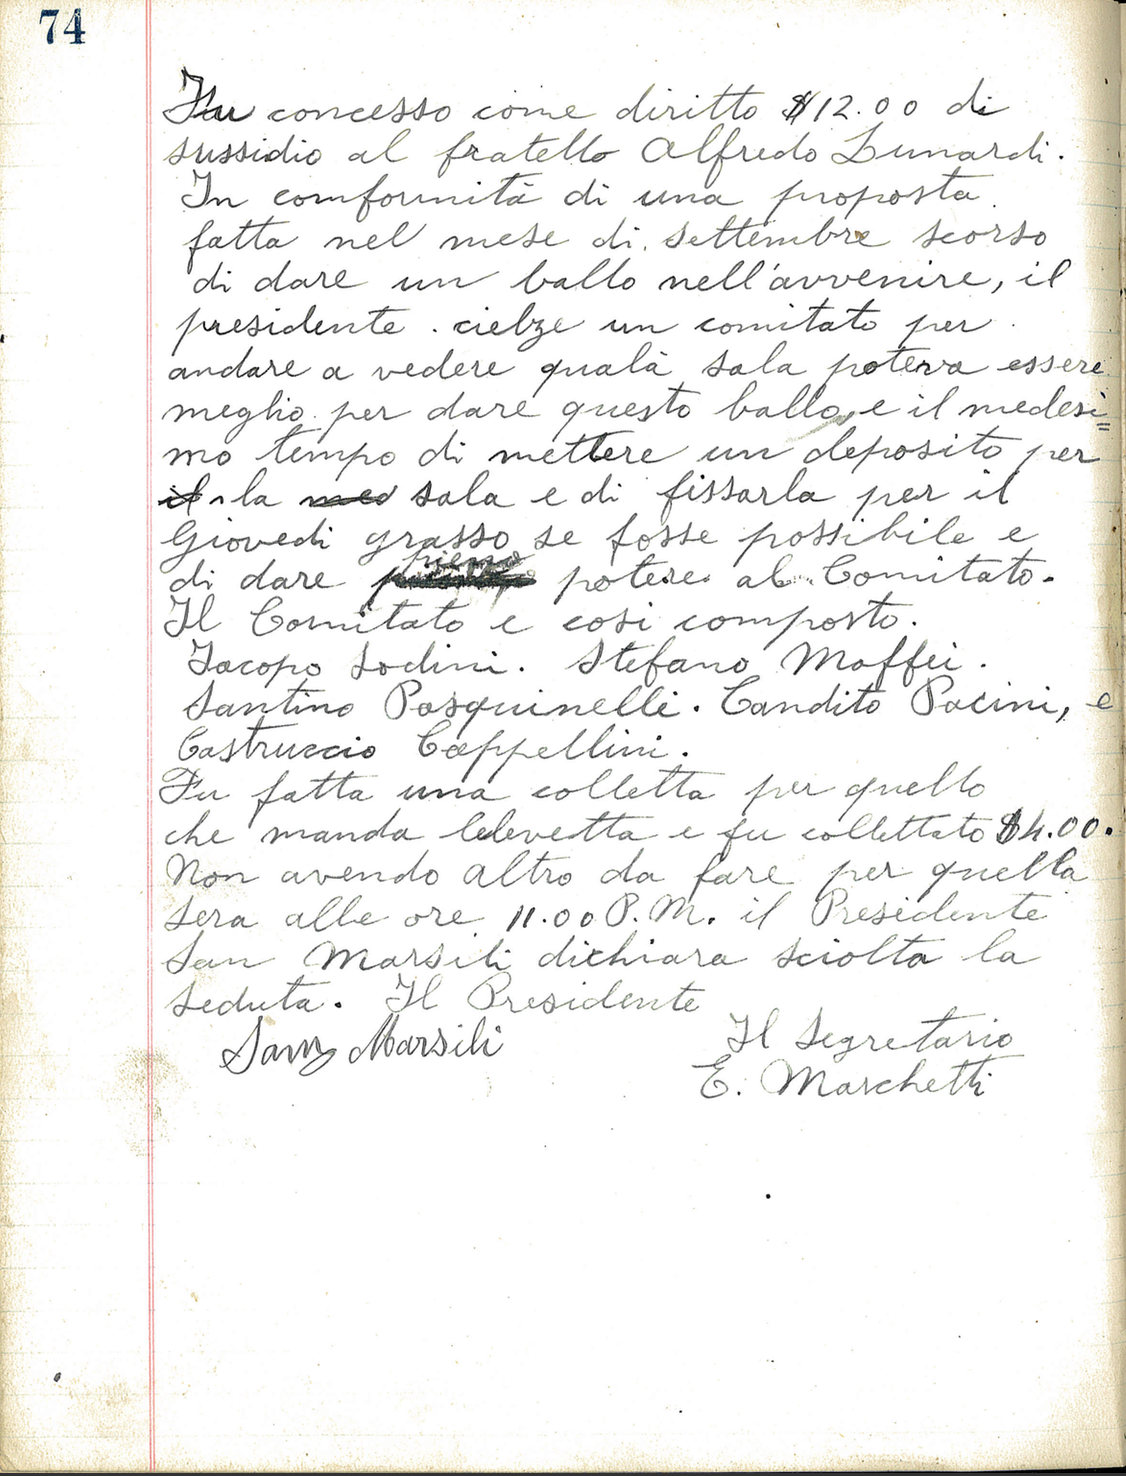 74
Fu concesso come diritto $12.00 di
sussidio al fratello Alfredo Lunardi.
In comformità di una proposta
fatta nel mese di settembre scorso
di dare un ballo nell'avvenire, il
presidente cielze un comitato per
andare a vedere qualà sala poteva essere
meglio per dare questo ballo, e il medesi=
mo tempo di mettere un deposito per
il la med sala e di fissarla per il
Giovedi grasso se fosse possibile e
di dare pieno potere al Comitato.
Il Comitato e cosi composto.
Jacopo Sodini. Stefano Maffei.
Santino Pasquinelli. Candito Pacini, e
Castruccio Cappellini.
Fu fatta una colletta per quello
che manda e fu collettato $4.00.
Non avendo altro da fare per quella
sera alle ore 11.00 P.M. il Presidente
Sam Marsili dichiara sciolta la
seduta. Il Presidente
Sam Marsili
Il Segretario
E. Marchetti